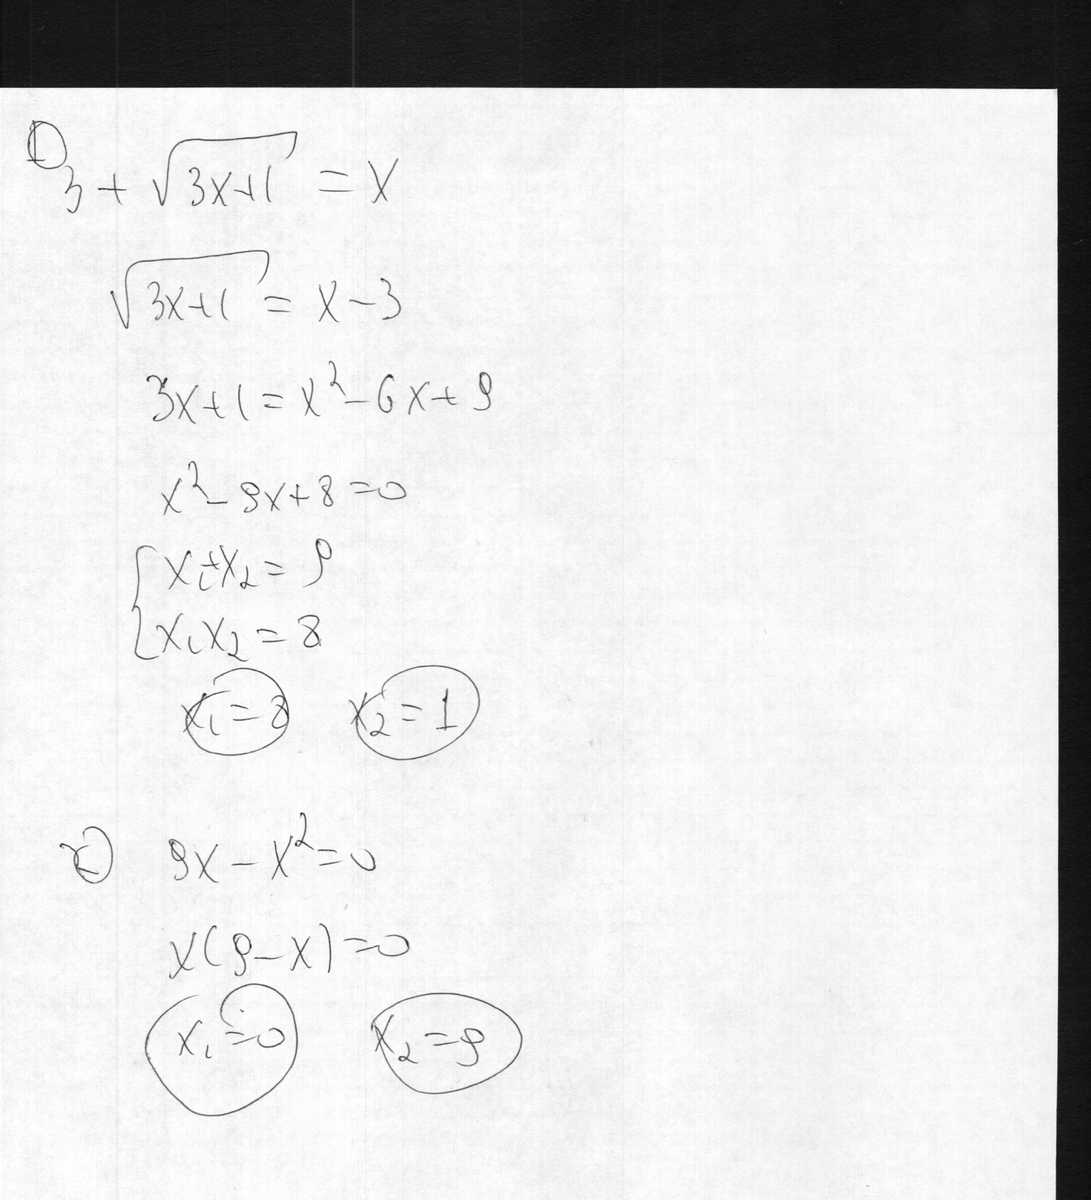 1) 3 + √(3x+1) = x
√(3x+1) = x - 3
3x+1 = x² - 6x + 9
x² - 9x + 8 = 0
{ x₁+x₂ = 9
x₁x₂ = 8
x₁ = 8 x₂ = 1
2) 9x - x² = 0
x(9-x) = 0
x₁ = 0 x₂ = 9